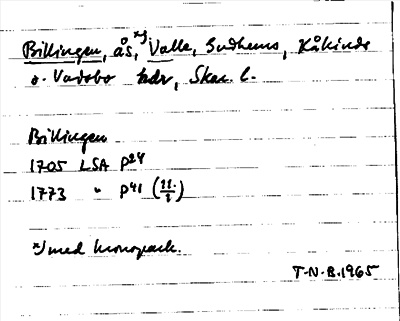 Billingen, ås,*) Valle, Gudhems, Kåkinds
o. Vadsbo hdr, Skar. l.
Billingen
1705 LSA P24
1773 " P41 (11:/1)
*) med Monopack.
T-N-B. 1965